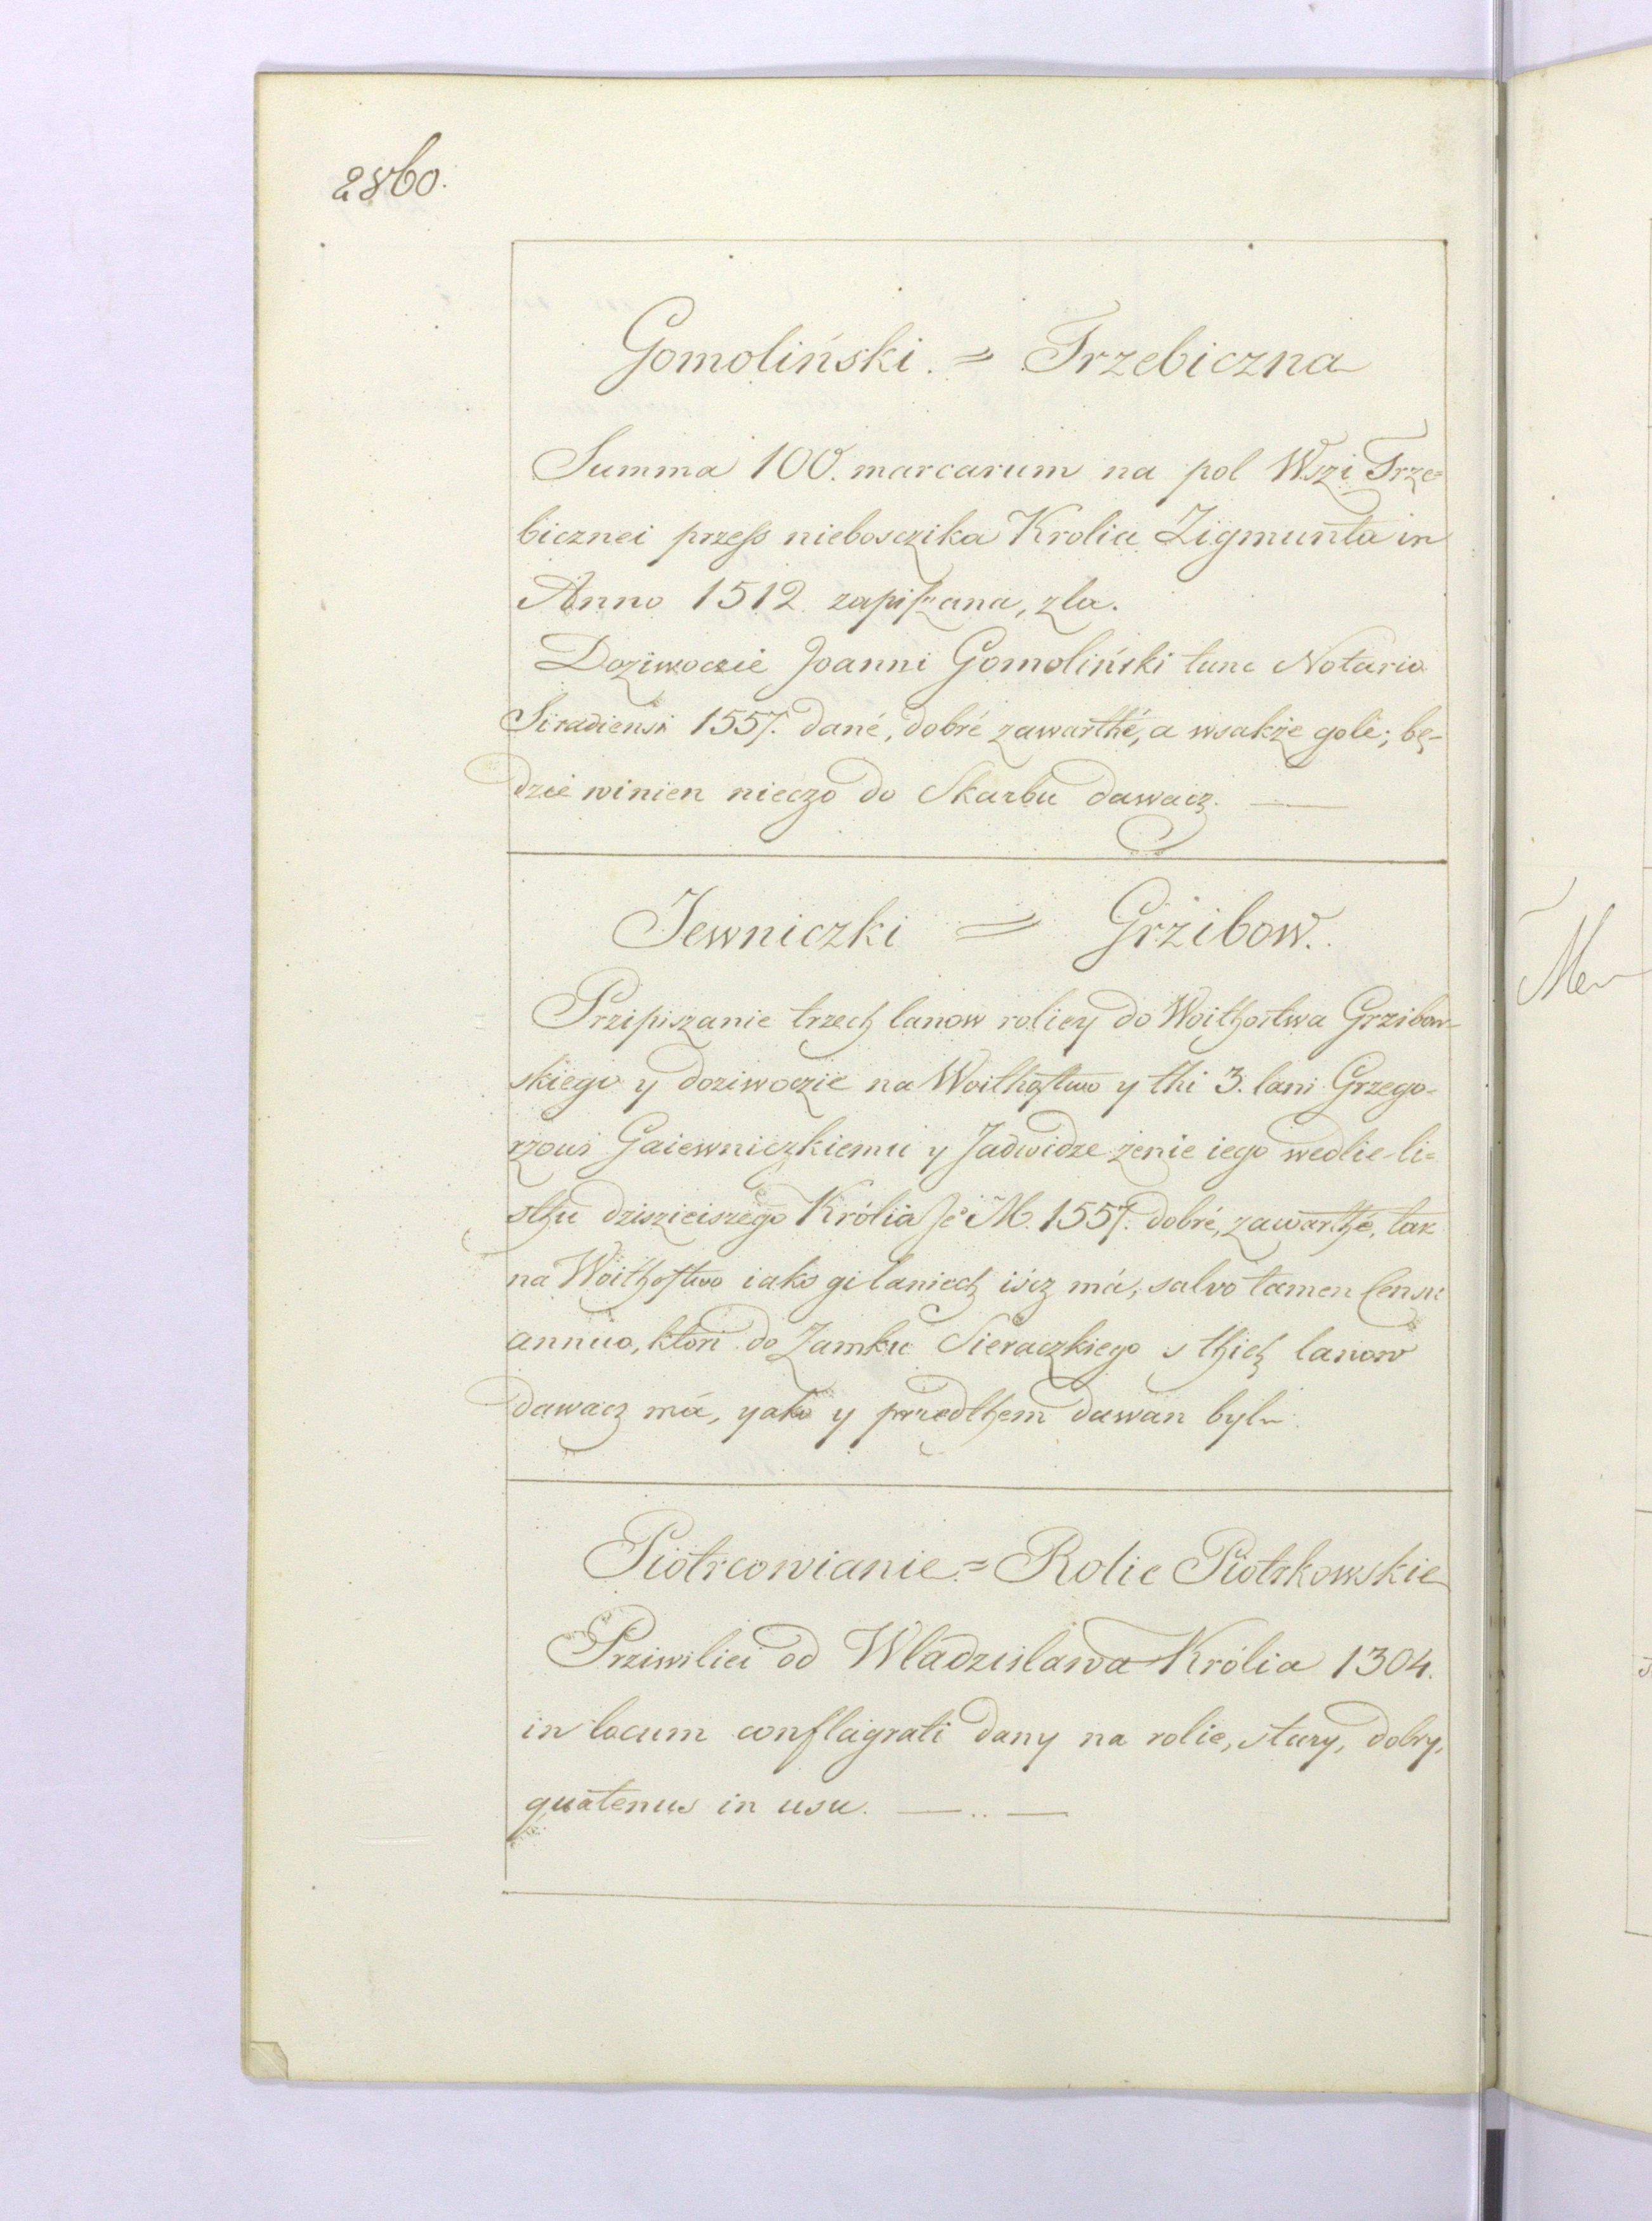 2860.
Gomoliński. = Trzebiczna
Summa 100. marcarum na pol Wszi Trze=
bicznei przess niebosczika Krolia Zigmunta in
Anno 1512 zapiszana, zla.
Doziwoczie Joanni Gomoliński tunc Notario
Siradiensi 1557. dané, dobré zawarthé, a wsakże gole; bę-
dzie winien nieczo do Skarbu dawacz. —
Jewniczki = Grzibow.
Przipiszanie trzech lanow roliey do Woithostwa Grzibow-
skiego y doziwoczie na Woithostwo y thi 3. lani Grzego-
rzowi Gaiewniczkiemu y Jadwidze żenie iego wedlie li=
sthu dziszieiszego Królia Je M. 1557. dobré, zawarthé, tak
na Woithostwo iako gi laniech iścz má, salvo tamen Censu
annuo, ktori do Zamku Sieraczkiego s thich lanow
dawacz má, yako y przedthem dawan byl.
Piotrcowianie = Rolie Piotrkowskie
Prziwiliei od Wladzislawa Królia 1304.
in locum conflagrati dany na rolie, stary, dobry,
quatenus in usu. — .. —